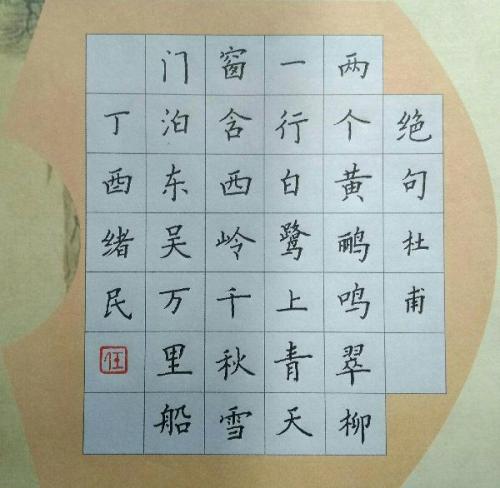 绝句杜甫
两个黄鹂鸣翠柳
一行白鹭上青天
窗含西岭千秋雪
门泊东吴万里船
丁酉绪民
任